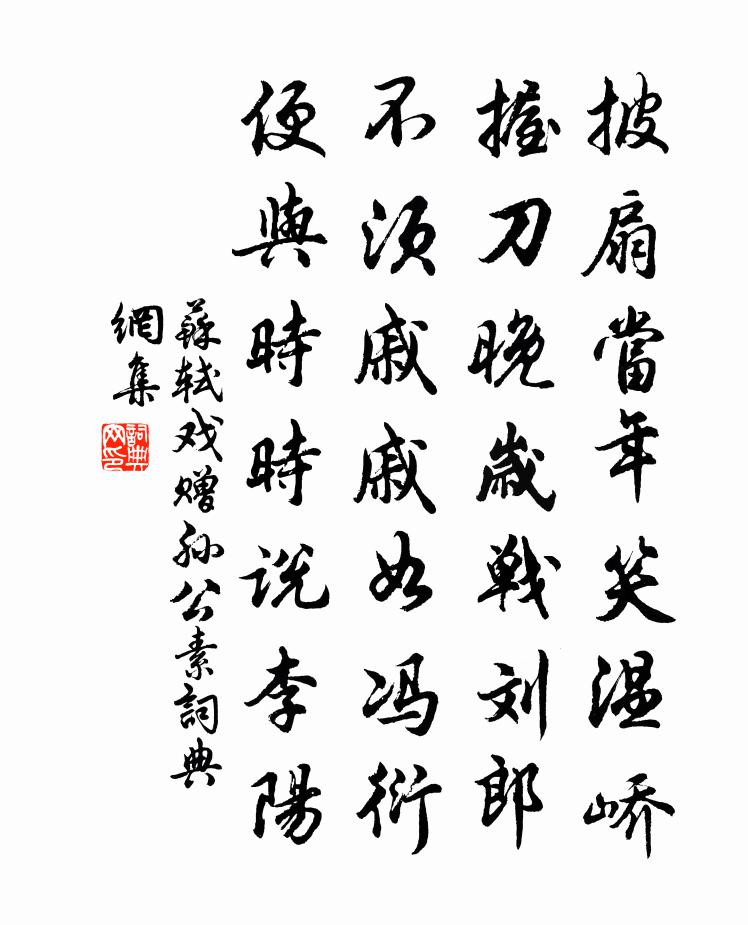 披扇當年笑温峤
握刀晚歲戦刘郎
不须戚戚如冯衍
便與時時说李陽
蘇轼戏赠孙公素詞典
網集
詞典
网印